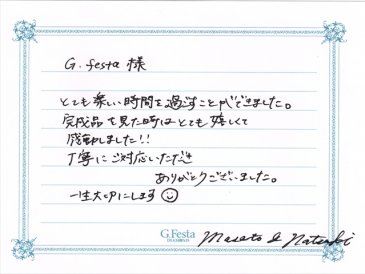 G. festa 様
とても楽しい時間を過ごすことができました。
完成品を見た時はとても嬉しくて
感動しました!!
丁寧にご対応いただき
ありがとうございました。
一生大切にします☺
G.Festa
Masato & Natsuki